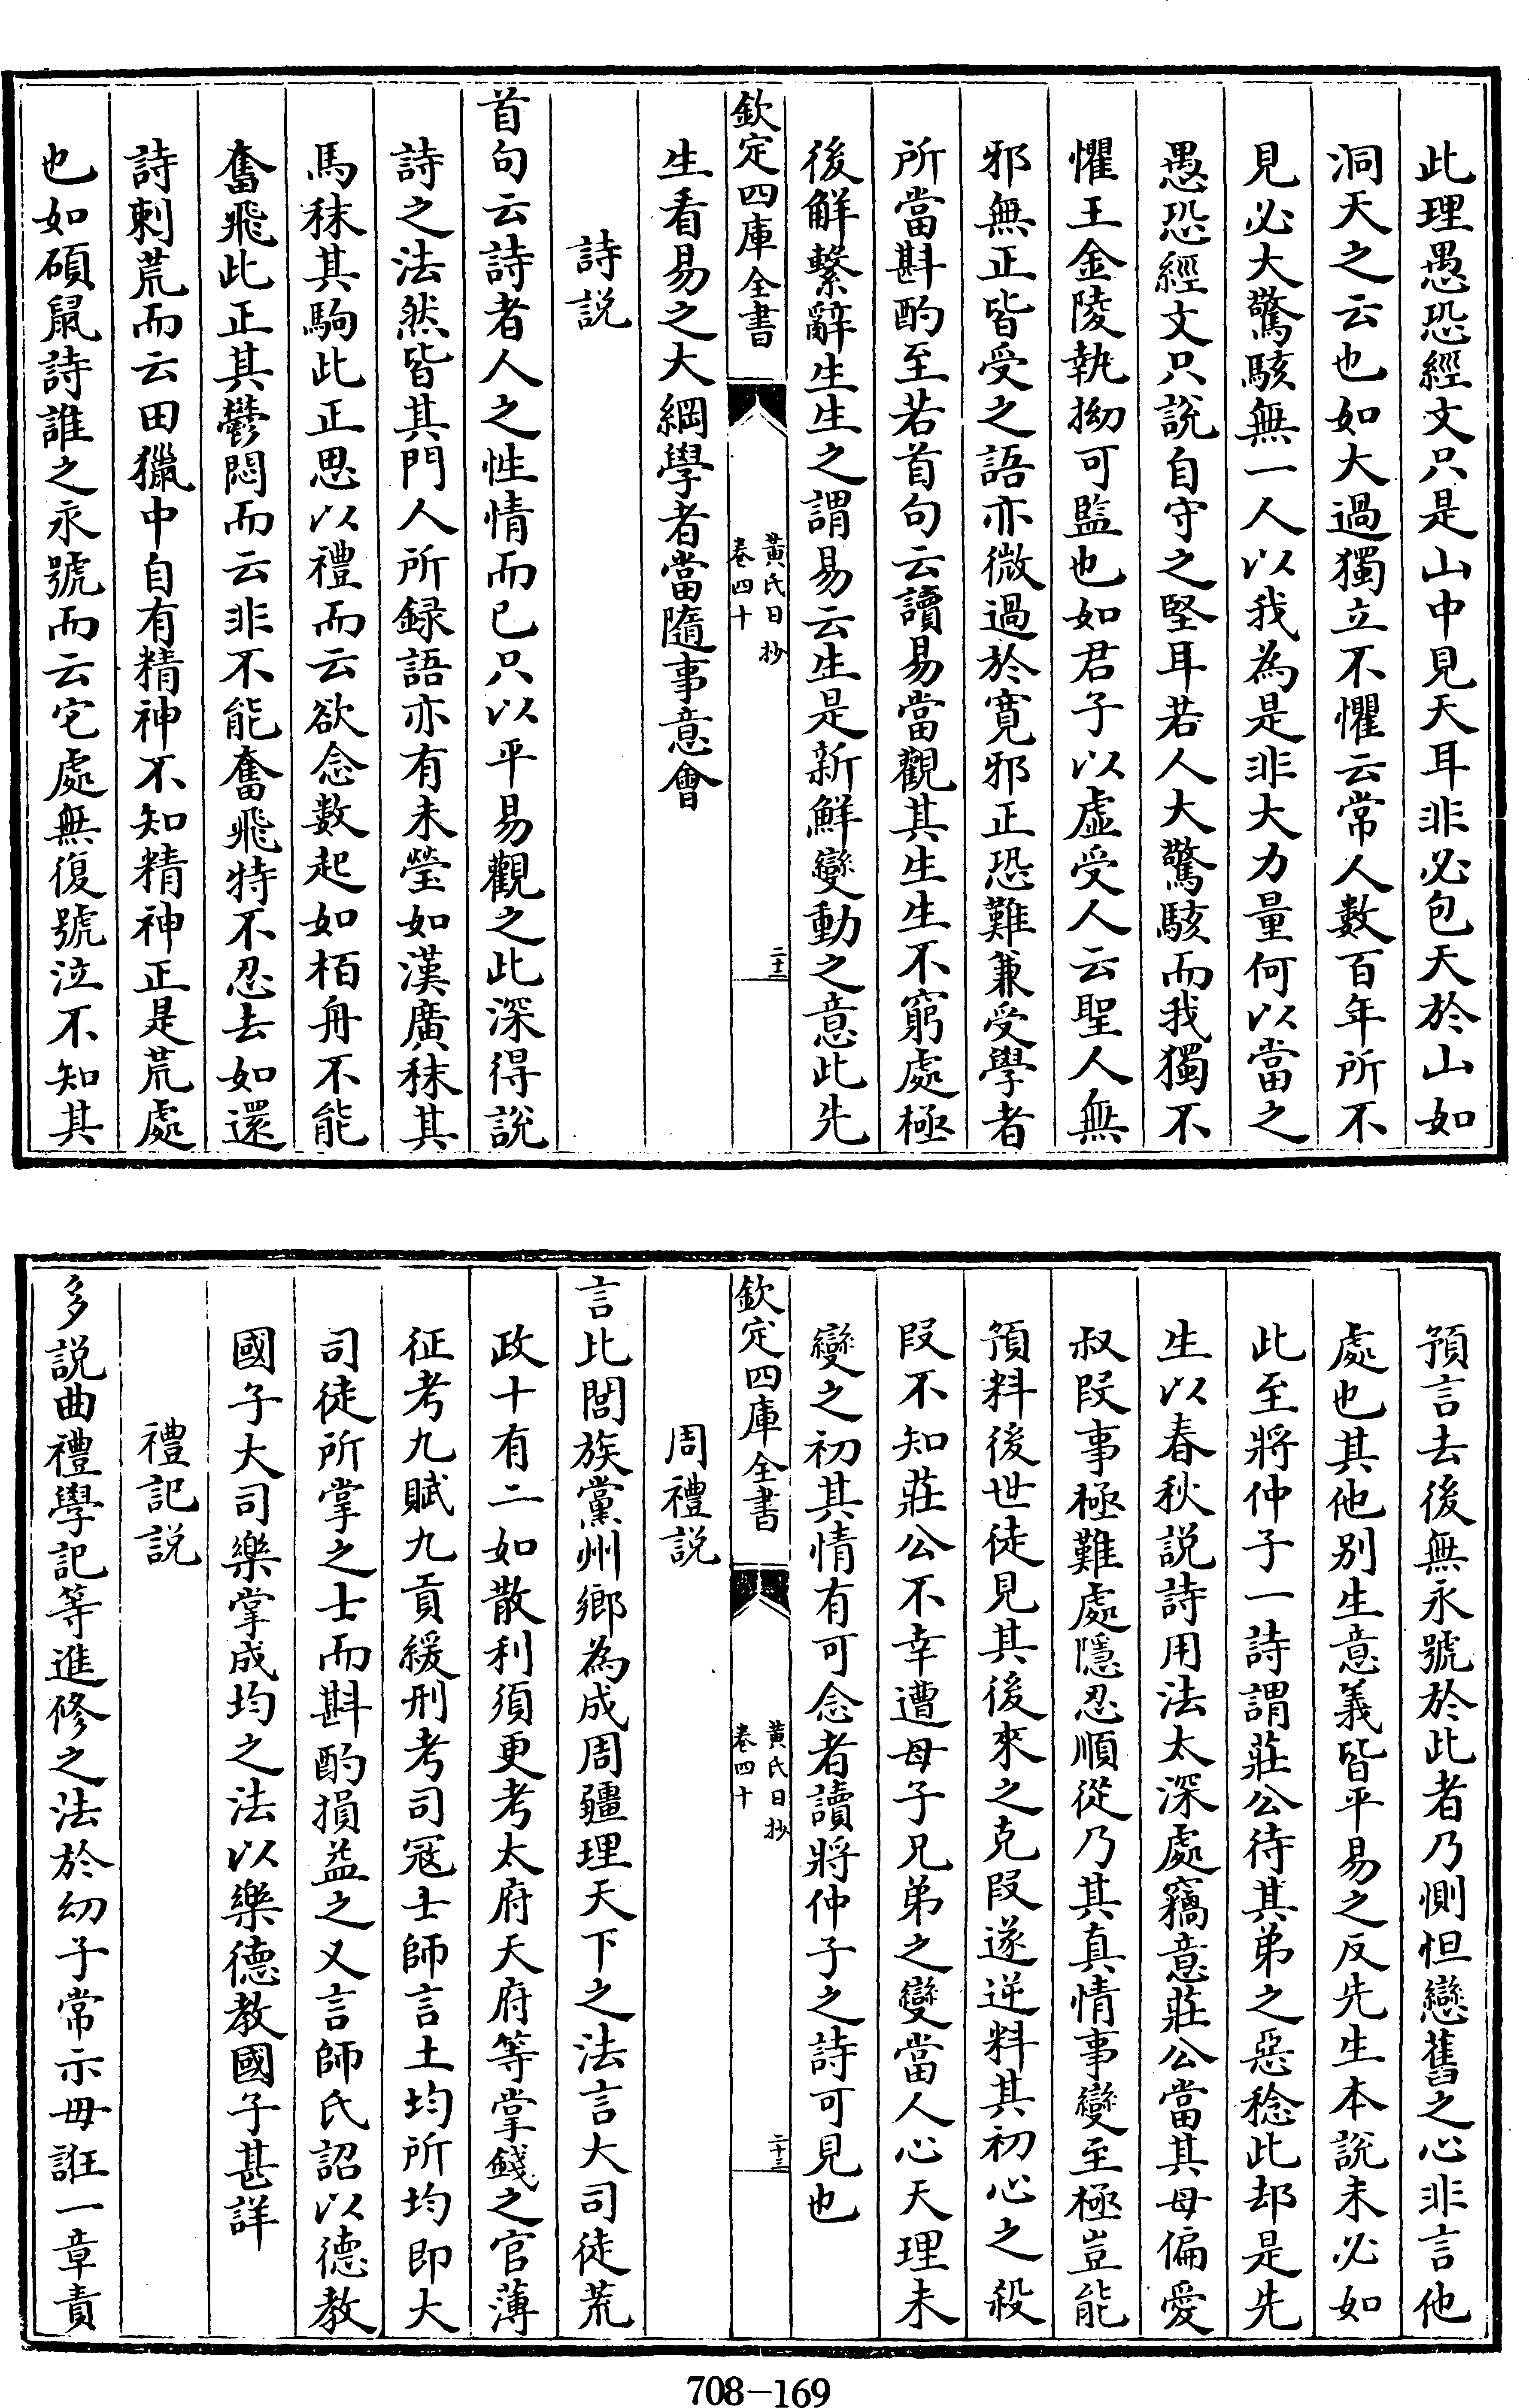 此理愚恐經文只是山中見天耳非必包天於山如
洞天之云也如大過獨立不懼云常人數百年所不
見必大驚駭無一人以我為是非大力量何以當之
愚恐經文只說自守之堅耳若人大驚駭而我獨不
懼王金陵執拗可監也如君子以虛受人云聖人無
邪無正皆受之語亦微過於寛邪正恐難兼受學者
所當斟酌至若首句云讀易當觀其生生不窮處極
後解繫辭生生之謂易云生是新鮮變動之意此先
欽定四庫全書
黃氏日抄
卷四十
二十二
生看易之大綱學者當隨事意會
詩説
首句云詩者人之性情而已只以平易觀之此深得說
詩之法然皆其門人所録語亦有未瑩如漢廣秣其
馬秣其駒此正思以禮而云欲念數起如栢舟不能
奮飛此正其鬱悶而云非不能奮飛特不忍去如還
詩刺荒而云田獵中自有精神不知精神正是荒處
也如碩鼠詩誰之永號而云宅處無復號泣不知其
預言去後無永號於此者乃惻怛戀舊之心非言他
處也其他别生意義皆平易之反先生本說未必如
此至將仲子一詩謂莊公待其弟之惡稔此却是先
生以春秋説詩用法太深處竊意莊公當其母偏愛
叔段事極難處隱忍順從乃其真情事變至極豈能
預料後世徒見其後來之克段遂逆料其初心之殺
段不知莊公不幸遭母子兄弟之變當人心天理未
變之初其情有可念者讀將仲子之詩可見也
欽定四庫全書
黃氏日抄
卷四十
二十三
周禮説
言比閭族黨州鄉為成周疆理天下之法言大司徒荒
政十有二如散利須更考太府天府等掌錢之官薄
征考九賦九貢緩刑考司冦士師言土均所均即大
司徒所掌之士而斟酌損益之又言師氏詔以德教
國子大司樂掌成均之法以樂德教國子甚詳
禮記説
多説曲禮學記等進修之法於幼子常示毋誑一章責
708-169